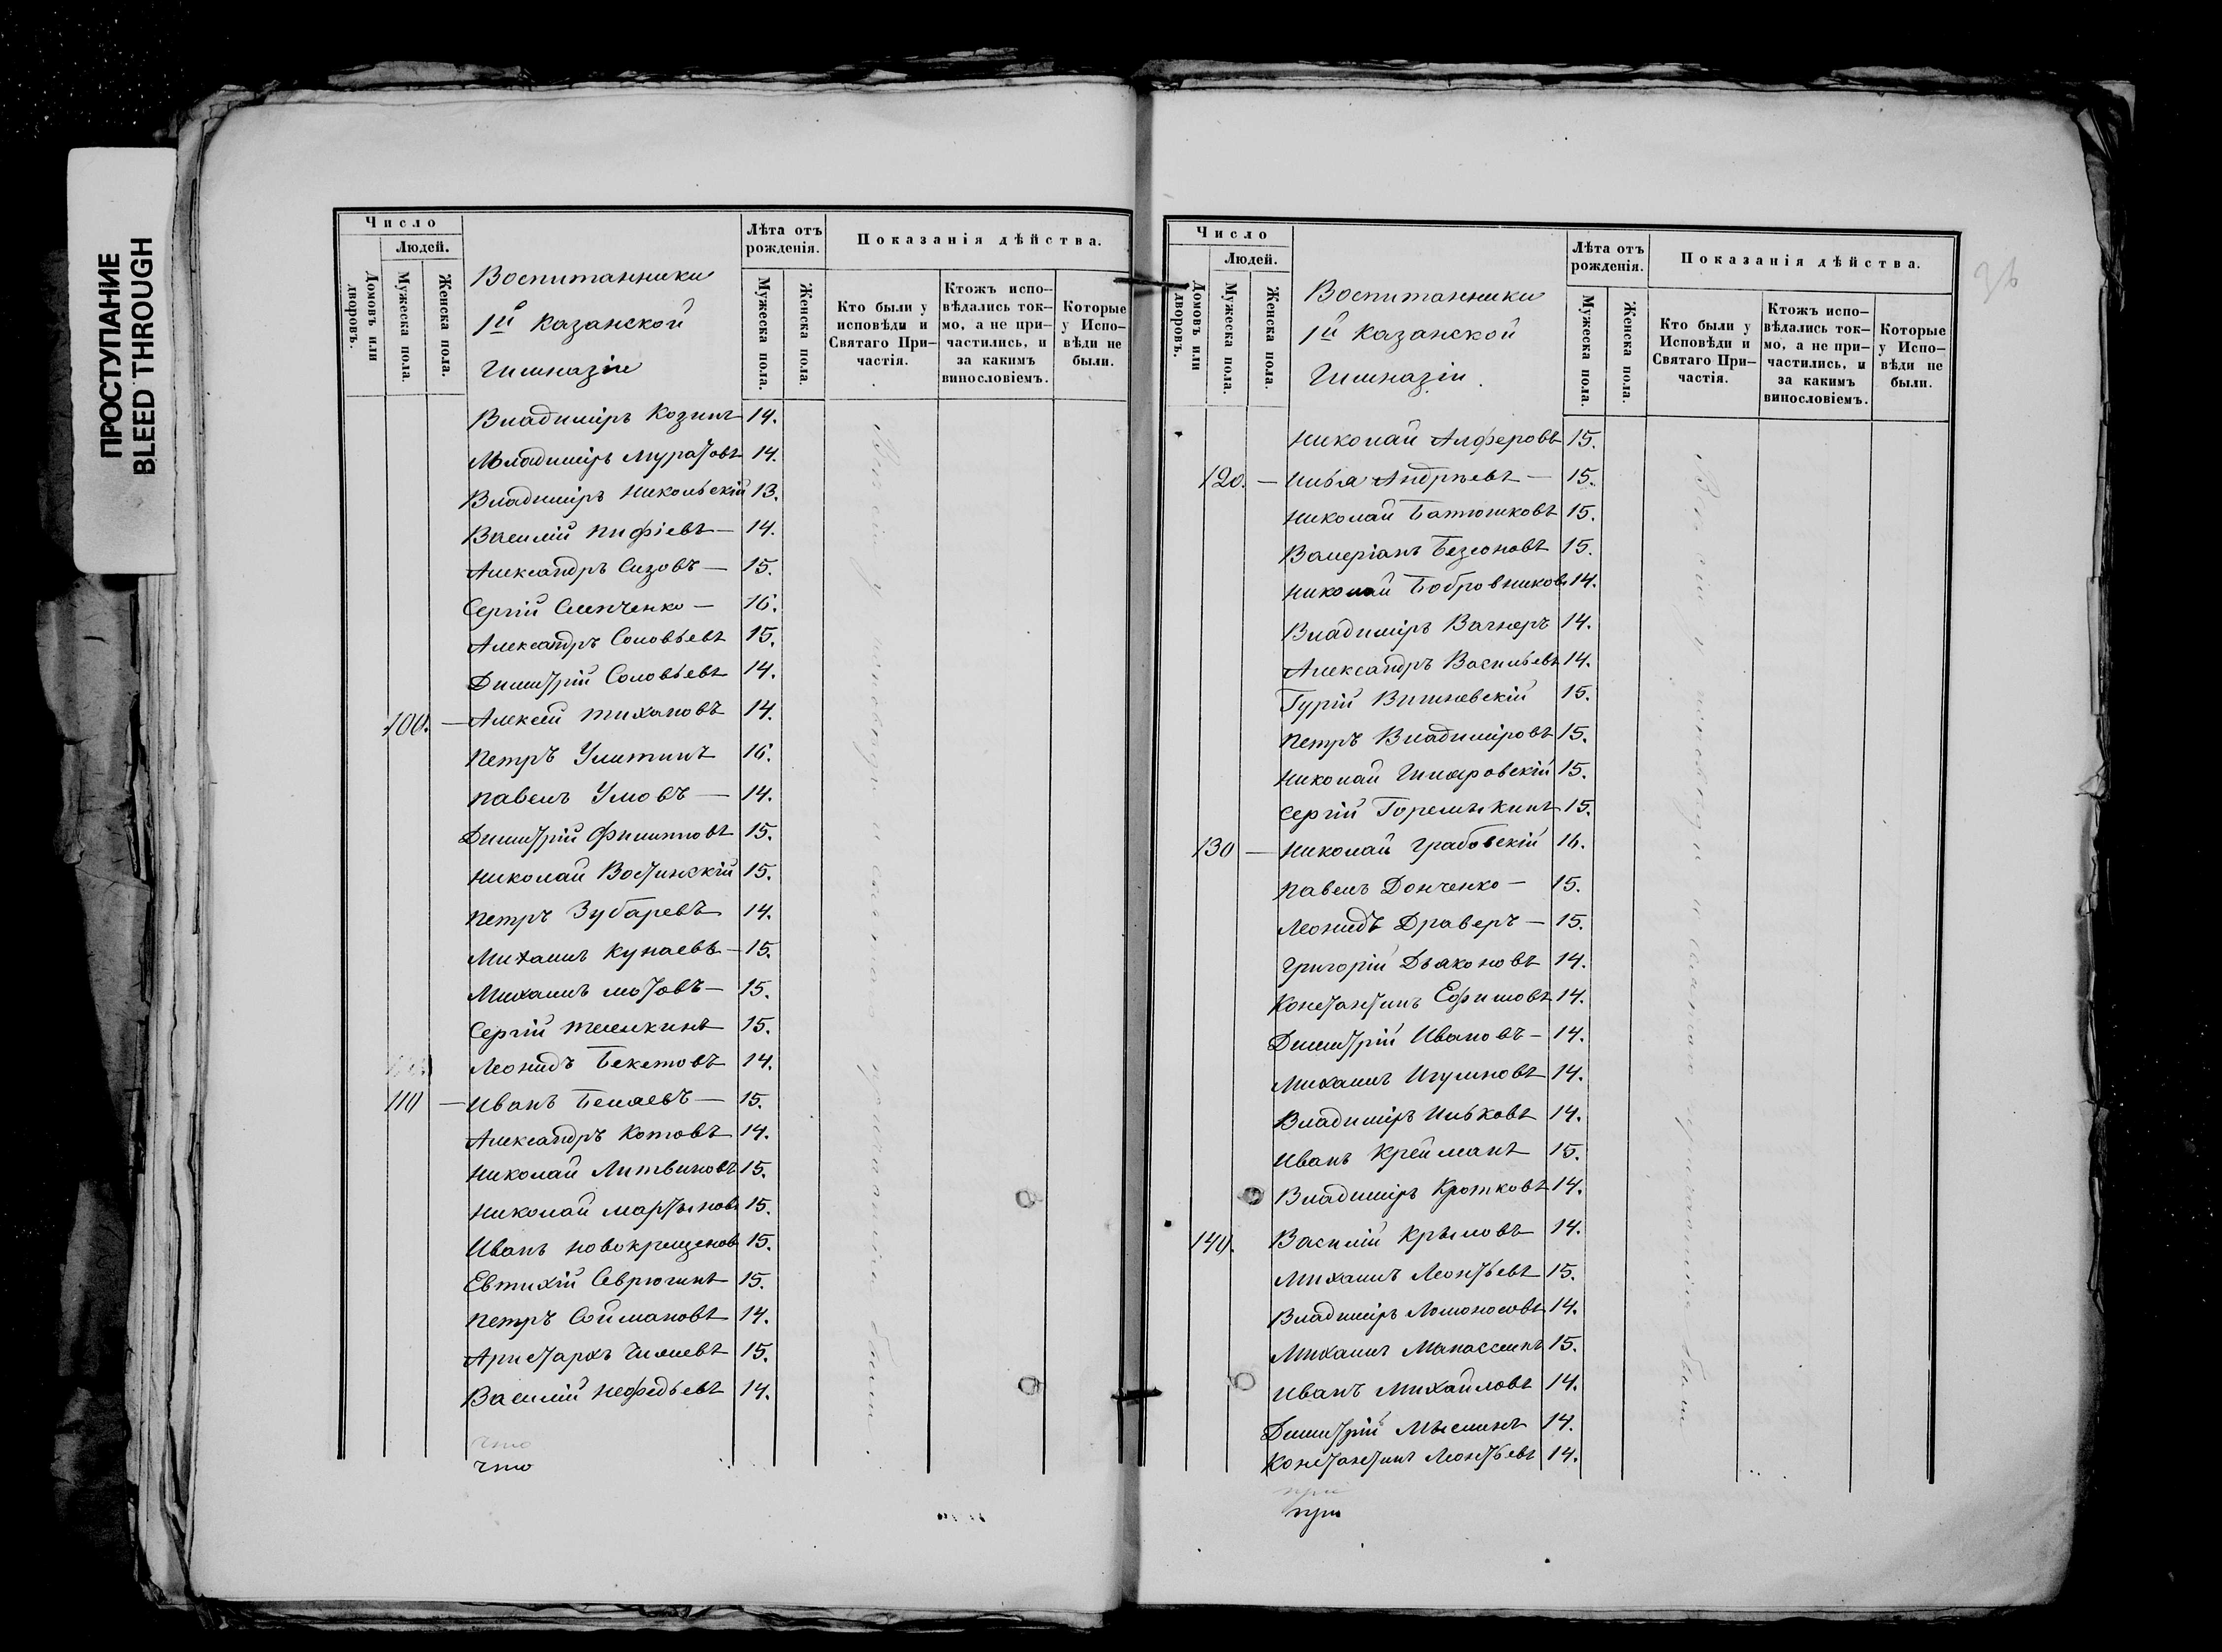 ПРОСТУПАНИЕ
BLEED THROUGH
Число
Людей.
Домовъ или дворовъ.
Мужеска пола.
Женска пола.
Воспитанники
1й Казанской
Гимназіи
Лѣта отъ рожденія.
Мужеска пола.
Женска пола.
Показанія дѣйства.
Кто были у исповѣди и Святаго Причастія.
Ктожъ исповѣдались токмо, а не причастились, и за какимъ винословіемъ.
Которые у Исповѣди не были.
Владиміръ Козинъ 14.
Владиміръ Муратовъ 14.
Владиміръ Никольскій 13.
Василій Пифіевъ — 14.
Александръ Сизовъ — 15.
Сергій Слепченко — 16.
Александръ Соловьевъ 15.
Димитрій Соловьевъ 14.
100. — Алексей Тихановъ 14.
Петръ Улитинъ 16.
Павелъ Умовъ — 14.
Димитрій Филипповъ 15.
Николай Востинскій 15.
Петръ Зубаревъ 14.
Михаилъ Кунаевъ — 15.
Михаилъ Мотовъ — 15.
Сергій Тюлькинъ 15.
Леонидъ Бекетовъ 14.
110 — Иванъ Беляевъ — 15.
Александръ Котовъ 14.
Николай Литвиновъ 15.
Николай Мартыновъ 15.
Иванъ Новокрещеновъ 15.
Евтихій Севрюгинъ 15.
Петръ Соймановъ 14.
Аристархъ 15.
Василій Нефедьевъ 14.
Всѣ сіи у исповѣди и святаго причастія были.
что
что
36
Число
Людей.
Домовъ или дворовъ.
Мужеска пола.
Женска пола.
Воспитанники
1й Казанской
Гимназіи.
Лѣта отъ рожденія.
Мужеска пола.
Женска пола.
Показанія дѣйства.
Кто были у Исповѣди и Святаго Причастія.
Ктожъ исповѣдались токмо, а не причастились, и за какимъ винословіемъ.
Которые у Исповѣди не были.
Николай Алферовъ 15.
120. — Илья Андреевъ — 15.
Николай Батюшковъ 15.
Валеріанъ Безсоновъ 15.
Николай Бобровниковъ 14.
Владиміръ Вагнеръ 14.
Александръ Васильевъ 14.
Гурій Вишневскій 15.
Петръ Владиміровъ 15.
Николай Гиляровскій 15.
Сергій Горемыкинъ 15.
130 — Николай Грабовскій 16.
Павелъ Донченко — 15.
Леонидъ Драверъ — 15.
Григорій Дьяконовъ 14.
Константинъ Ефимовъ 14.
Димитрій Ивановъ — 14.
Михаилъ Игумновъ 14.
Владиміръ Ильковъ 14.
Иванъ Крейманъ 15.
Владиміръ Кротковъ 14.
140. Василій Крыловъ 14.
Михаилъ Леонтьевъ 15.
Владиміръ Ломоносовъ 14.
Михаилъ Манассеинъ 15.
Иванъ Михайловъ 14.
Димитрій Мысинъ 14.
Константинъ Леонтьевъ 14.
Всѣ сіи у исповѣди и святаго причастія были
при
при